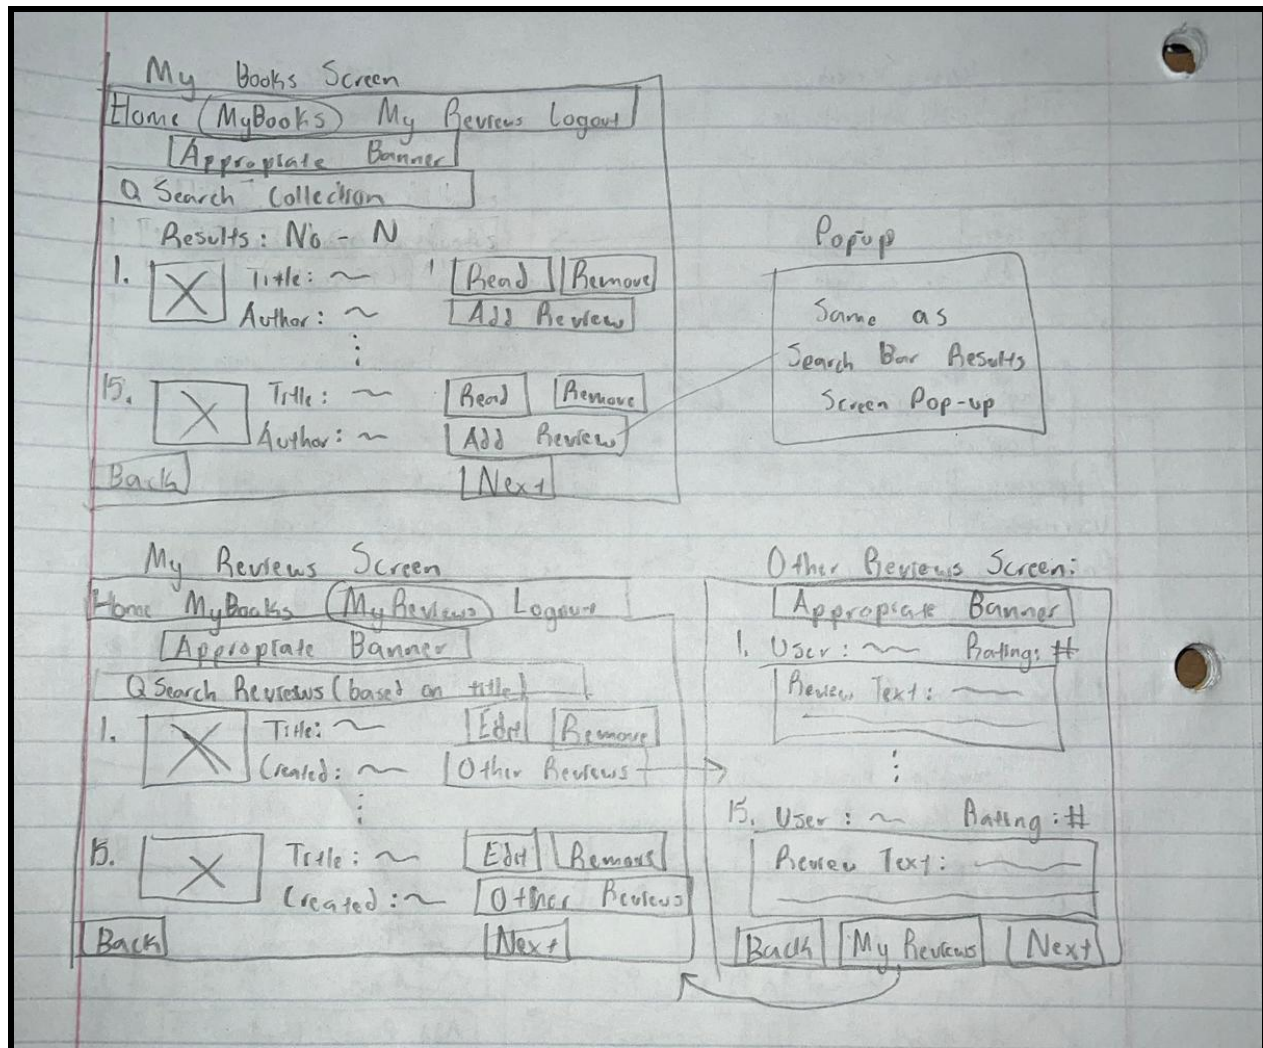 My Books Screen
Home MyBooks My Reviews Logout
Appropiate Banner
Search Collection
Results: No - N
1. Title: Read Remove
Author: Add Review
15. Title: Read Remove
Author: Add Review
Back Next
Popup
Same as
Search Bar Results
Screen Pop-up
My Reviews Screen
Home MyBooks MyReviews Logout
Appropiate Banner
Search Reviews (based on title)
1. Title: Edit Remove
Created: Other Reviews
15. Title: Edit Remove
Created: Other Reviews
Back Next
Other Reviews Screen:
Appropiate Banner
1. User: Rating: #
Review Text:
15. User: Rating: #
Review Text:
Back My Reviews Next